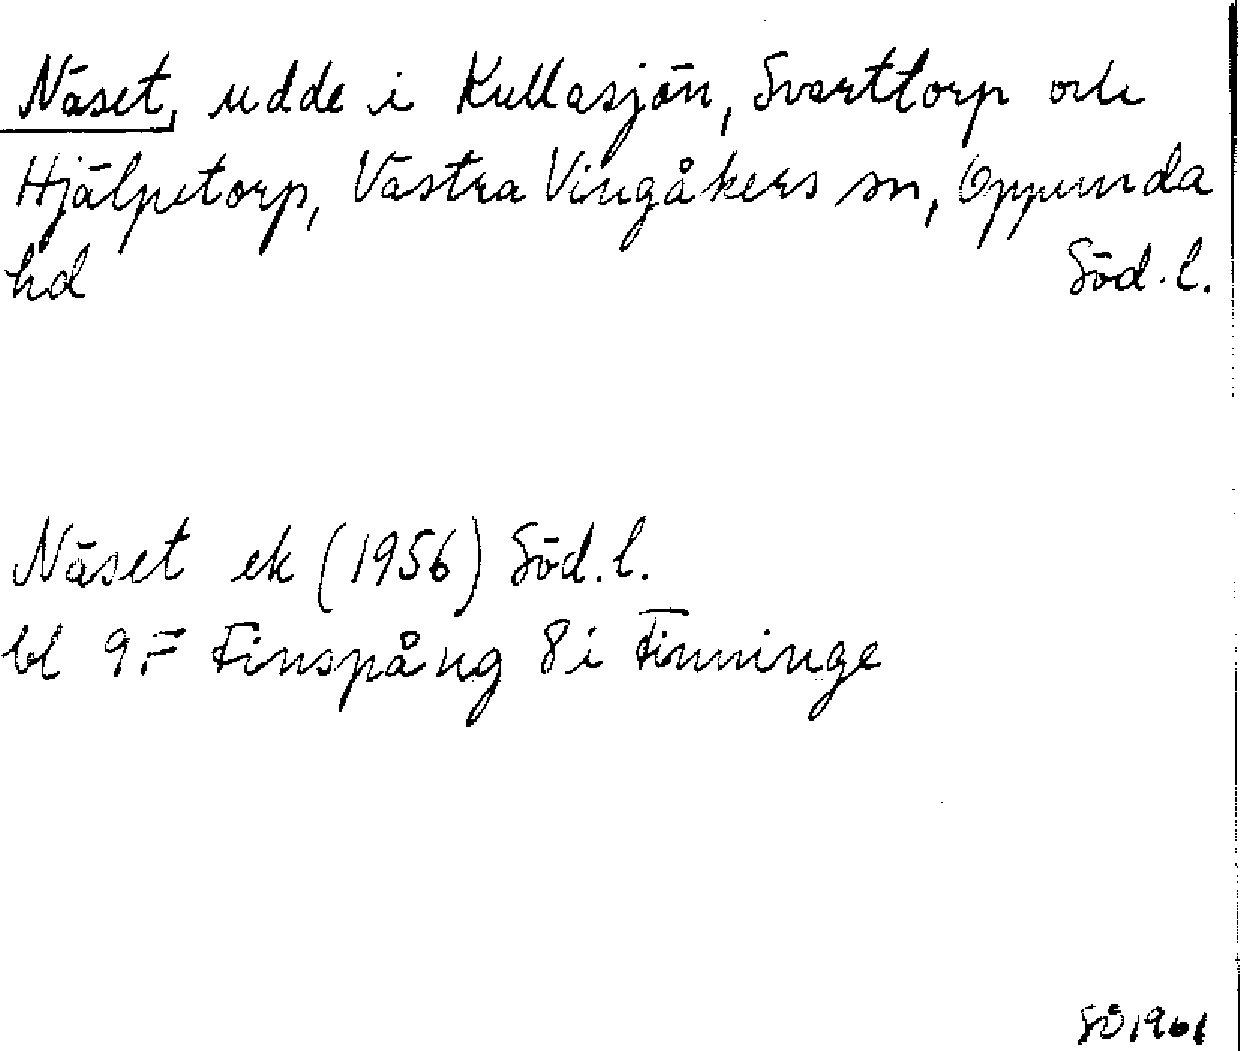 Näset, udde i Kullasjön, Svarttorp och
Hjälpetorp, Västra Vingåkers sn, Oppunda
hd Söd. l.
Näset ek (1956) Söd. l.
bl 9F Finspång 8i Finninge
SÖ 1961